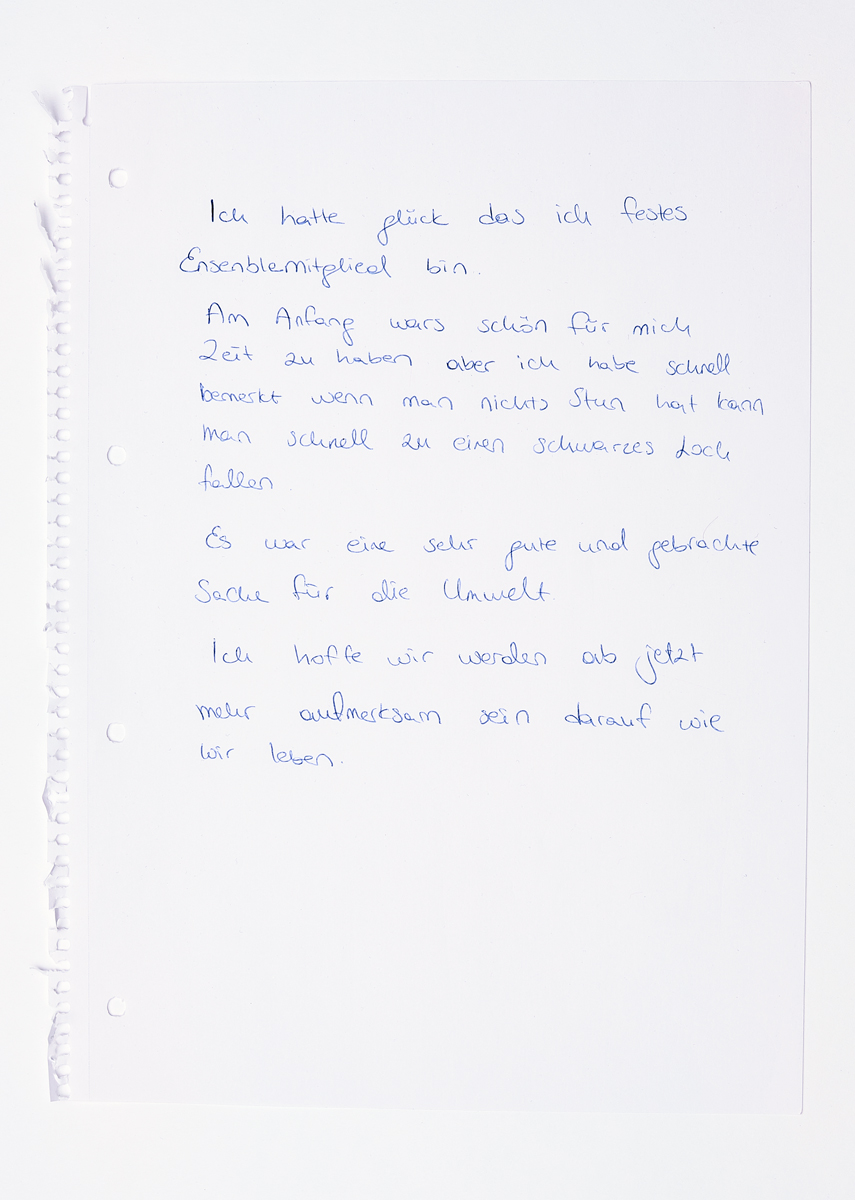 Ich hatte glück das ich festes
Ensenblemitglied bin.
Am Anfang wars schön für mich
Zeit zu haben aber ich habe schnell
bemerkt wenn man nichts Stun hat kann
man schnell zu einen schwarzes Loch
fallen
Es war eine sehr gute und gebrachte
Sache für die Umwelt.
Ich hoffe wir werden ab jetzt
mehr aufmerksam sein darauf wie
wir leben.